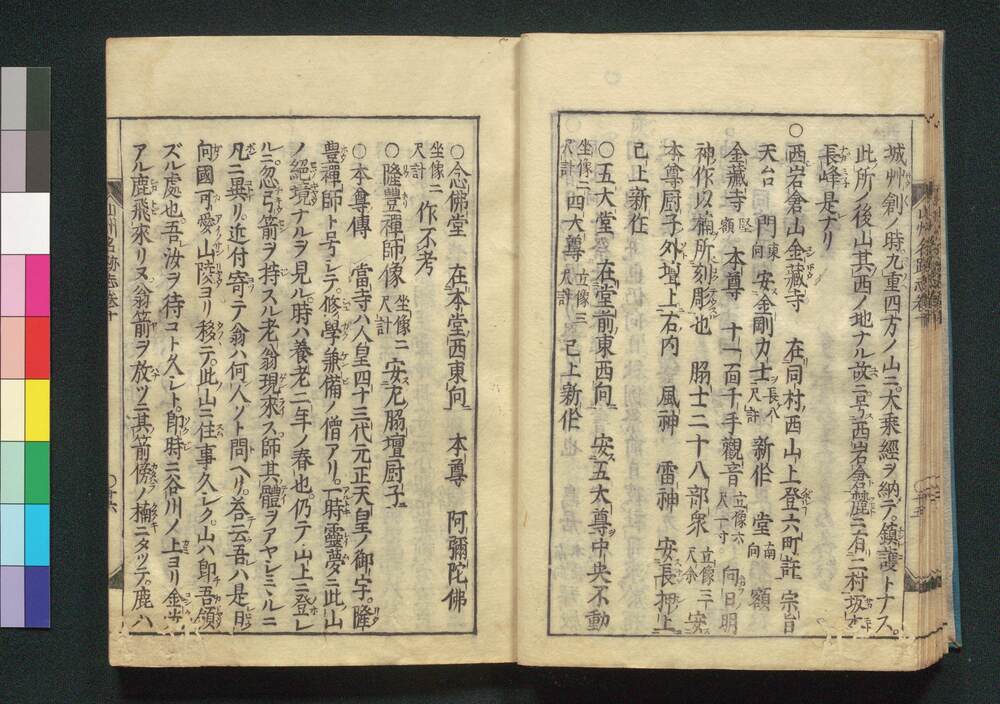 城州創ノ時九重四方ノ山ニ大乗經ヲ納テ鎮護トナス。
此ノ所ノ後山其西ノ地ナル故ニ号西岩倉麓ニ有二村坂本
長峰是ナリ
○西岩倉山金藏寺 在同村西山上登六町許 宗旨
天台 門東向 安金剛力士長八尺計 新作 堂南向 額
金藏寺竪額 本尊 十一面千手觀音立像六尺一寸 向日明
神作以楠所刻彫也 脇士二十八部衆立像三尺余 安
本尊厨子外壇上右内 風神 雷神 安長押上
已上新作
○五大堂 在堂前東西向 安五大尊中央不動
坐像二尺計 四大尊立像三尺計 已上新作
○念佛堂 在本堂西東向 本尊 阿彌陀佛
坐像二尺計 作不考
○隆豐禪師像坐像二尺計 安左脇壇厨子
○本尊傳 當寺ハ人皇四十三代元正天皇ノ御宇。隆
豊禪師ト号シテ。修學兼備ノ僧アリ。一時靈夢ニ此山
ノ絕境ナルヲ見ル。時ハ養老二年ノ春也。仍テ山上ニ登レ
ルニ。忽弓箭ヲ持スル老翁現來ス。師其體ヲアヤシミルニ
凡ニ異リ。近付寄テ翁ハ何人ソト問ヘリ。答云吾ハ是日
向國可愛山陵ヨリ移テ。此山ニ住事久シク。山ハ卽吾領
ズル處也。吾汝ヲ待コト久シト。卽時ニ谷川ノ上ヨリ金色
アル鹿飛來リヌ翁箭ヲ放ツニ其箭傍ノ楠ニタツテ。鹿ハ
山州名跡志卷十